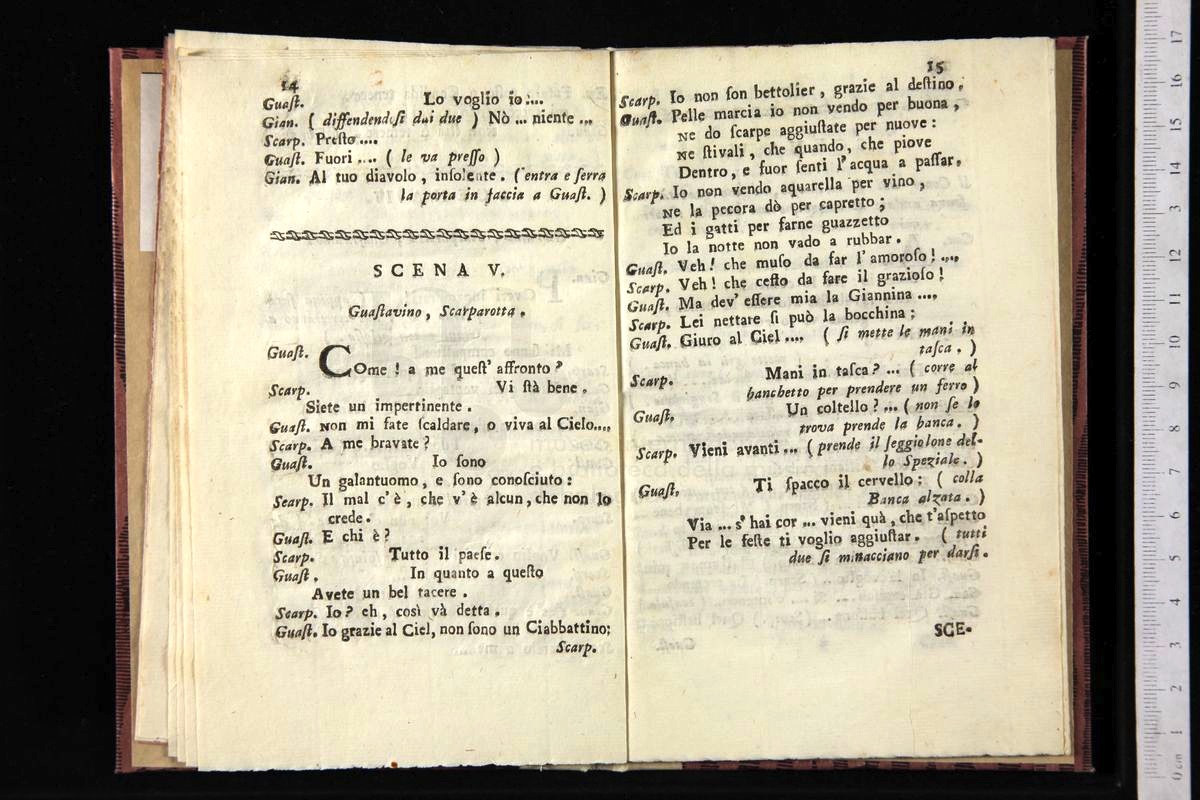 14
Guaſt. Lo voglio io....
Gian. ( diffendendoſi dai due ) Nò ... niente ...
Scarp. Preſto....
Guaſt. Fuori .... ( le va preſſo )
Gian. Al tuo diavolo, inſolente. (entra e ſerra
la porta in faccia a Guaſt. )
SCENA V.
Guaſtavino, Scarparotta.
Guaſt. COme! a me queſt' affronto?
Scarp. Vi ſtà bene.
Siete un impertinente.
Guaſt. Non mi fate ſcaldare, o viva al Cielo....
Scarp. A me bravate?
Guaſt. Io ſono
Un galantuomo, e ſono conoſciuto:
Searp. Il mal c'è, che v'è alcun, che non lo
crede.
Guaſt. E chi è?
Scarp. Tutto il paeſe.
Guaſt. In quanto a queſto
Avete un bel tacere.
Scarp. Io? eh, così và detta.
Guaſt. Io grazie al Ciel, non ſono un Ciabbattino;
Scarp.
15
Scarp. Io non ſon bettolier, grazie al deſtino.
Guaſt. Pelle marcia io non vendo per buona,
Ne do ſcarpe aggiuſtate per nuove:
Ne ſtivali, che quando, che piove
Dentro, e fuor ſenti l'acqua a paſſar.
Scarp. Io non vendo aquarella per vino,
Ne la pecora dò per capretto;
Ed i gatti per farne guazzetto
Io la notte non vado a rubbar.
Guaſt. Veh! che muſo da far l'amoroſo! ....
Scarp. Veh! che ceſto da fare il grazioſo!
Guaſt. Ma dev' eſſere mia la Giannina ....
Scarp. Lei nettare ſi può la bocchina;
Guaſt. Giuro al Ciel .... ( ſi mette le mani in
taſca. )
Scarp. Mani in taſca? ... ( corre al
banchetto per prendere un ferro )
Guaſt. Un coltello? ... ( non ſe lo
trova prende la banca. )
Scarp. Vieni avanti ... ( prende il ſeggiolone del-
lo Speziale. )
Guaſt. Ti ſpacco il cervello: ( colla
Banca alzata. )
Via ... s' hai cor ... vieni quà, che t'aſpetto
Per le feſte ti voglio aggiuſtar. ( tutti
due ſi minacciano per darſi.
SCE-